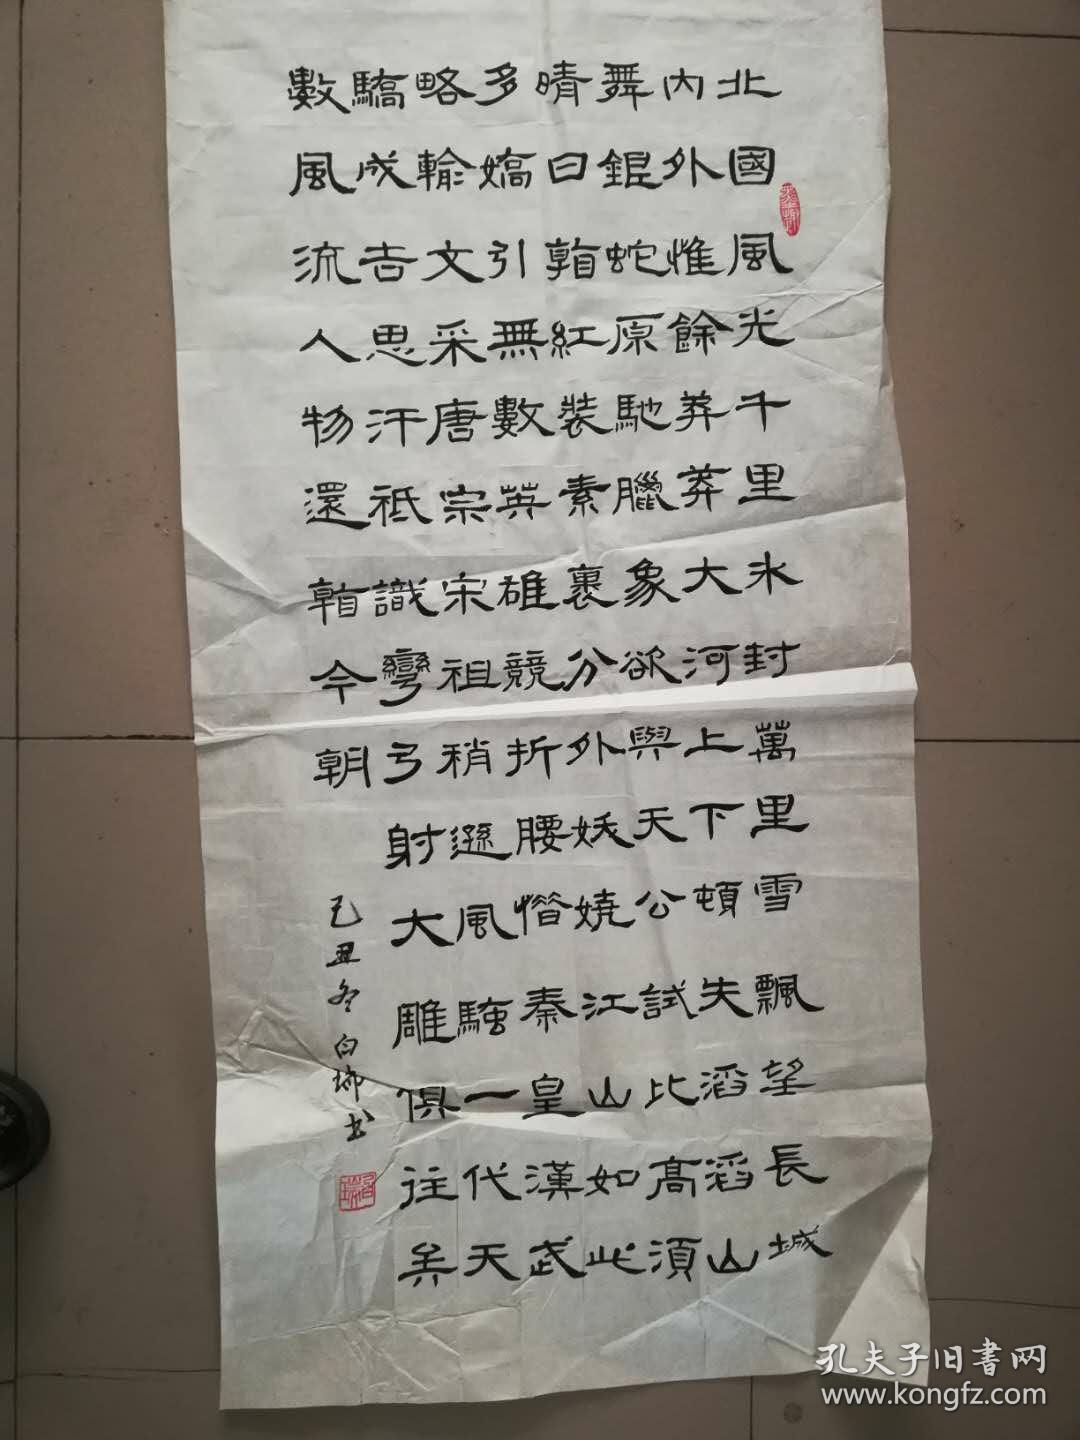 北國風光千里氷封萬里雪飄望長城
內外惟餘莽莽大河上下頓失滔滔山
舞銀蛇原馳臘象欲與天公試比高須
晴日看紅裝素裹分外妖嬈江山如此
多嬌引無數英雄競折腰惜秦皇漢武
略輸文采唐宗宋祖稍遜風騷一代天
驕成吉思汗祇識彎弓射大雕俱往矣
數風流人物還看今朝
己丑冬白瑞书
孔夫子旧書网
www.kongfz.com